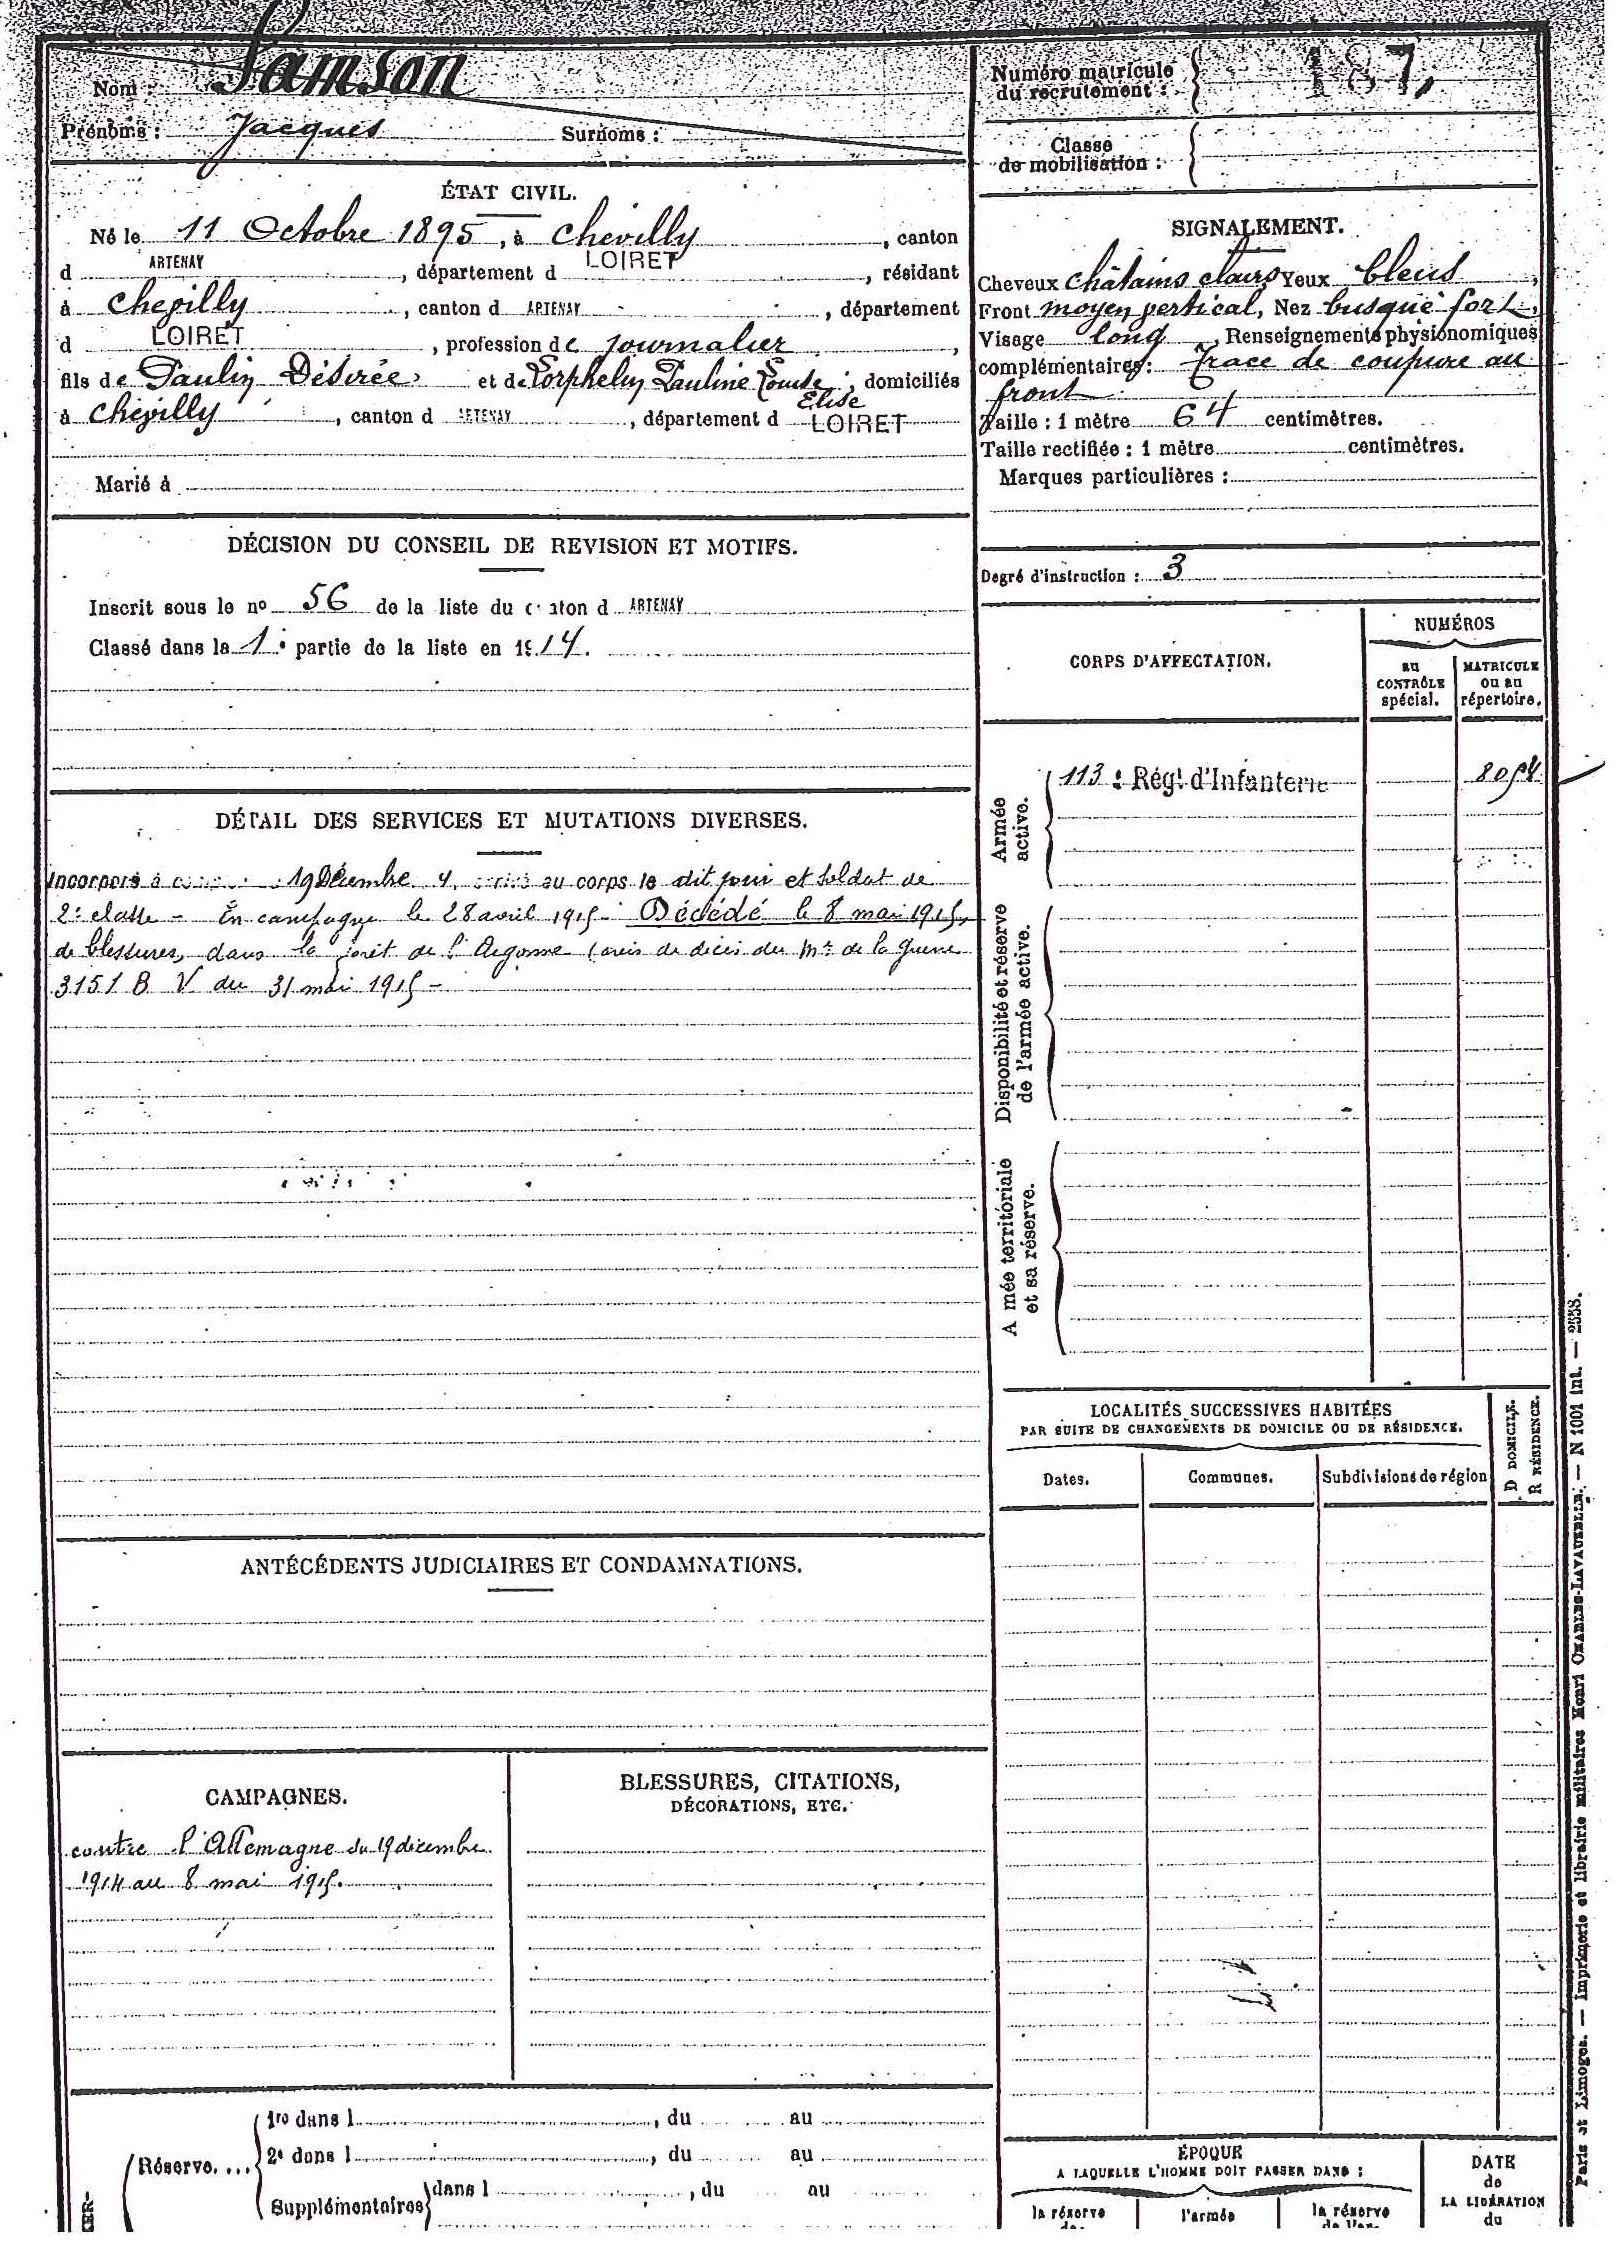 Nom : Samson
Prénoms : Jacques Surnoms :
ÉTAT CIVIL.
Né le 11 Octobre 1895, à Chevilly, canton
d ARTENAY, département d LOIRET, résidant
à Chevilly, canton d ARTENAY, département
d LOIRET, profession de journalier,
fils de Paulin Désirée et de Lorphelin Pauline Louise Elise, domiciliés
à Chevilly, canton d ARTENAY, département d LOIRET
Marié à
DÉCISION DU CONSEIL DE REVISION ET MOTIFS.
Inscrit sous le no 56 de la liste du canton d ARTENAY
Classé dans la 1e partie de la liste en 1914.
DÉTAIL DES SERVICES ET MUTATIONS DIVERSES.
Incorporé à 19 Décembre 4, au corps le dit jour et soldat de
2e classe – En campagne le 28 avril 1915 – Décédé le 8 mai 1915,
de blessures, dans la forêt de l'Argonne (avis de décès du Mre de la Guerre
3151 B V du 31 mai 1915 –
ANTÉCÉDENTS JUDICIAIRES ET CONDAMNATIONS.
CAMPAGNES.
contre l'Allemagne du 19 décembre
1914 au 8 mai 1915.
BLESSURES, CITATIONS,
DÉCORATIONS, ETC.
Réserve....
1re dans l , du au
2e dans l , du au
Supplémentaires dans l , du au
CER-
Numéro matricule
du recrutement : 187,
Classe
de mobilisation :
SIGNALEMENT.
Cheveux châtains clairs Yeux bleus,
Front moyen vertical, Nez busqué fort,
Visage long, Renseignements physionomiques
complémentaires : Trace de coupure au
front
Taille : 1 mètre 64 centimètres.
Taille rectifiée : 1 mètre centimètres.
Marques particulières :
Degré d'instruction : 3
CORPS D'AFFECTATION.
NUMÉROS
au
CONTRÔLE
spécial.
MATRICULE
ou au
répertoire.
Armée
active.
113e Régt d'Infanterie 8054
Disponibilité et réserve
de l'armée active.
A mée territoriale
et sa réserve.
LOCALITÉS SUCCESSIVES HABITÉES
PAR SUITE DE CHANGEMENTS DE DOMICILE OU DE RÉSIDENCE.
Dates. Communes. Subdivisions de région
D DOMICILE.
R RÉSIDENCE.
ÉPOQUE
A LAQUELLE L'HOMME DOIT PASSER DANS :
la réserve
de
l'armée
la réserve
de l'ar-
DATE
de
LA LIBÉRATION
du
Paris et Limoges. — Imprimerie et librairie militaires Henri CHARLES-LAVAUZELLE. — N 1001 int. — 2558.